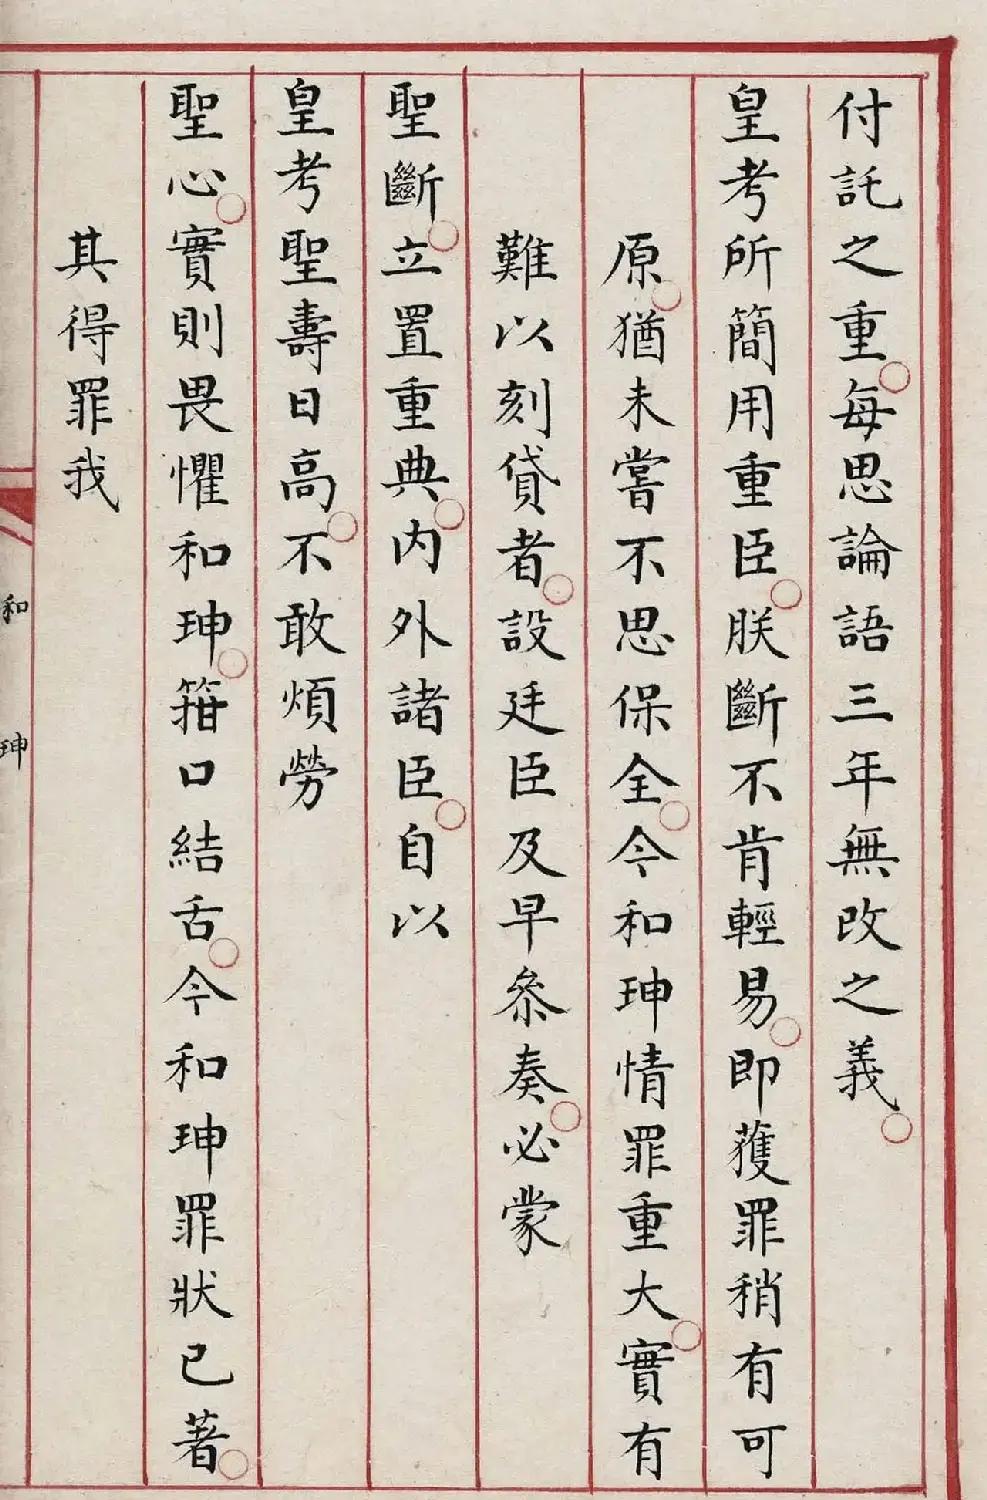 付託之重。每思論語三年無改之義。
皇考所簡用重臣。朕斷不肯輕易。即獲罪稍有可
原。猶未嘗不思保全。今和珅情罪重大。實有
難以刻貸者。設廷臣及早叅奏。必蒙
聖斷。立置重典。內外諸臣。自以
皇考聖壽日高。不敢煩勞
聖心。實則畏懼和珅。箝口結舌。今和珅罪狀已著。
其得罪我
和珅